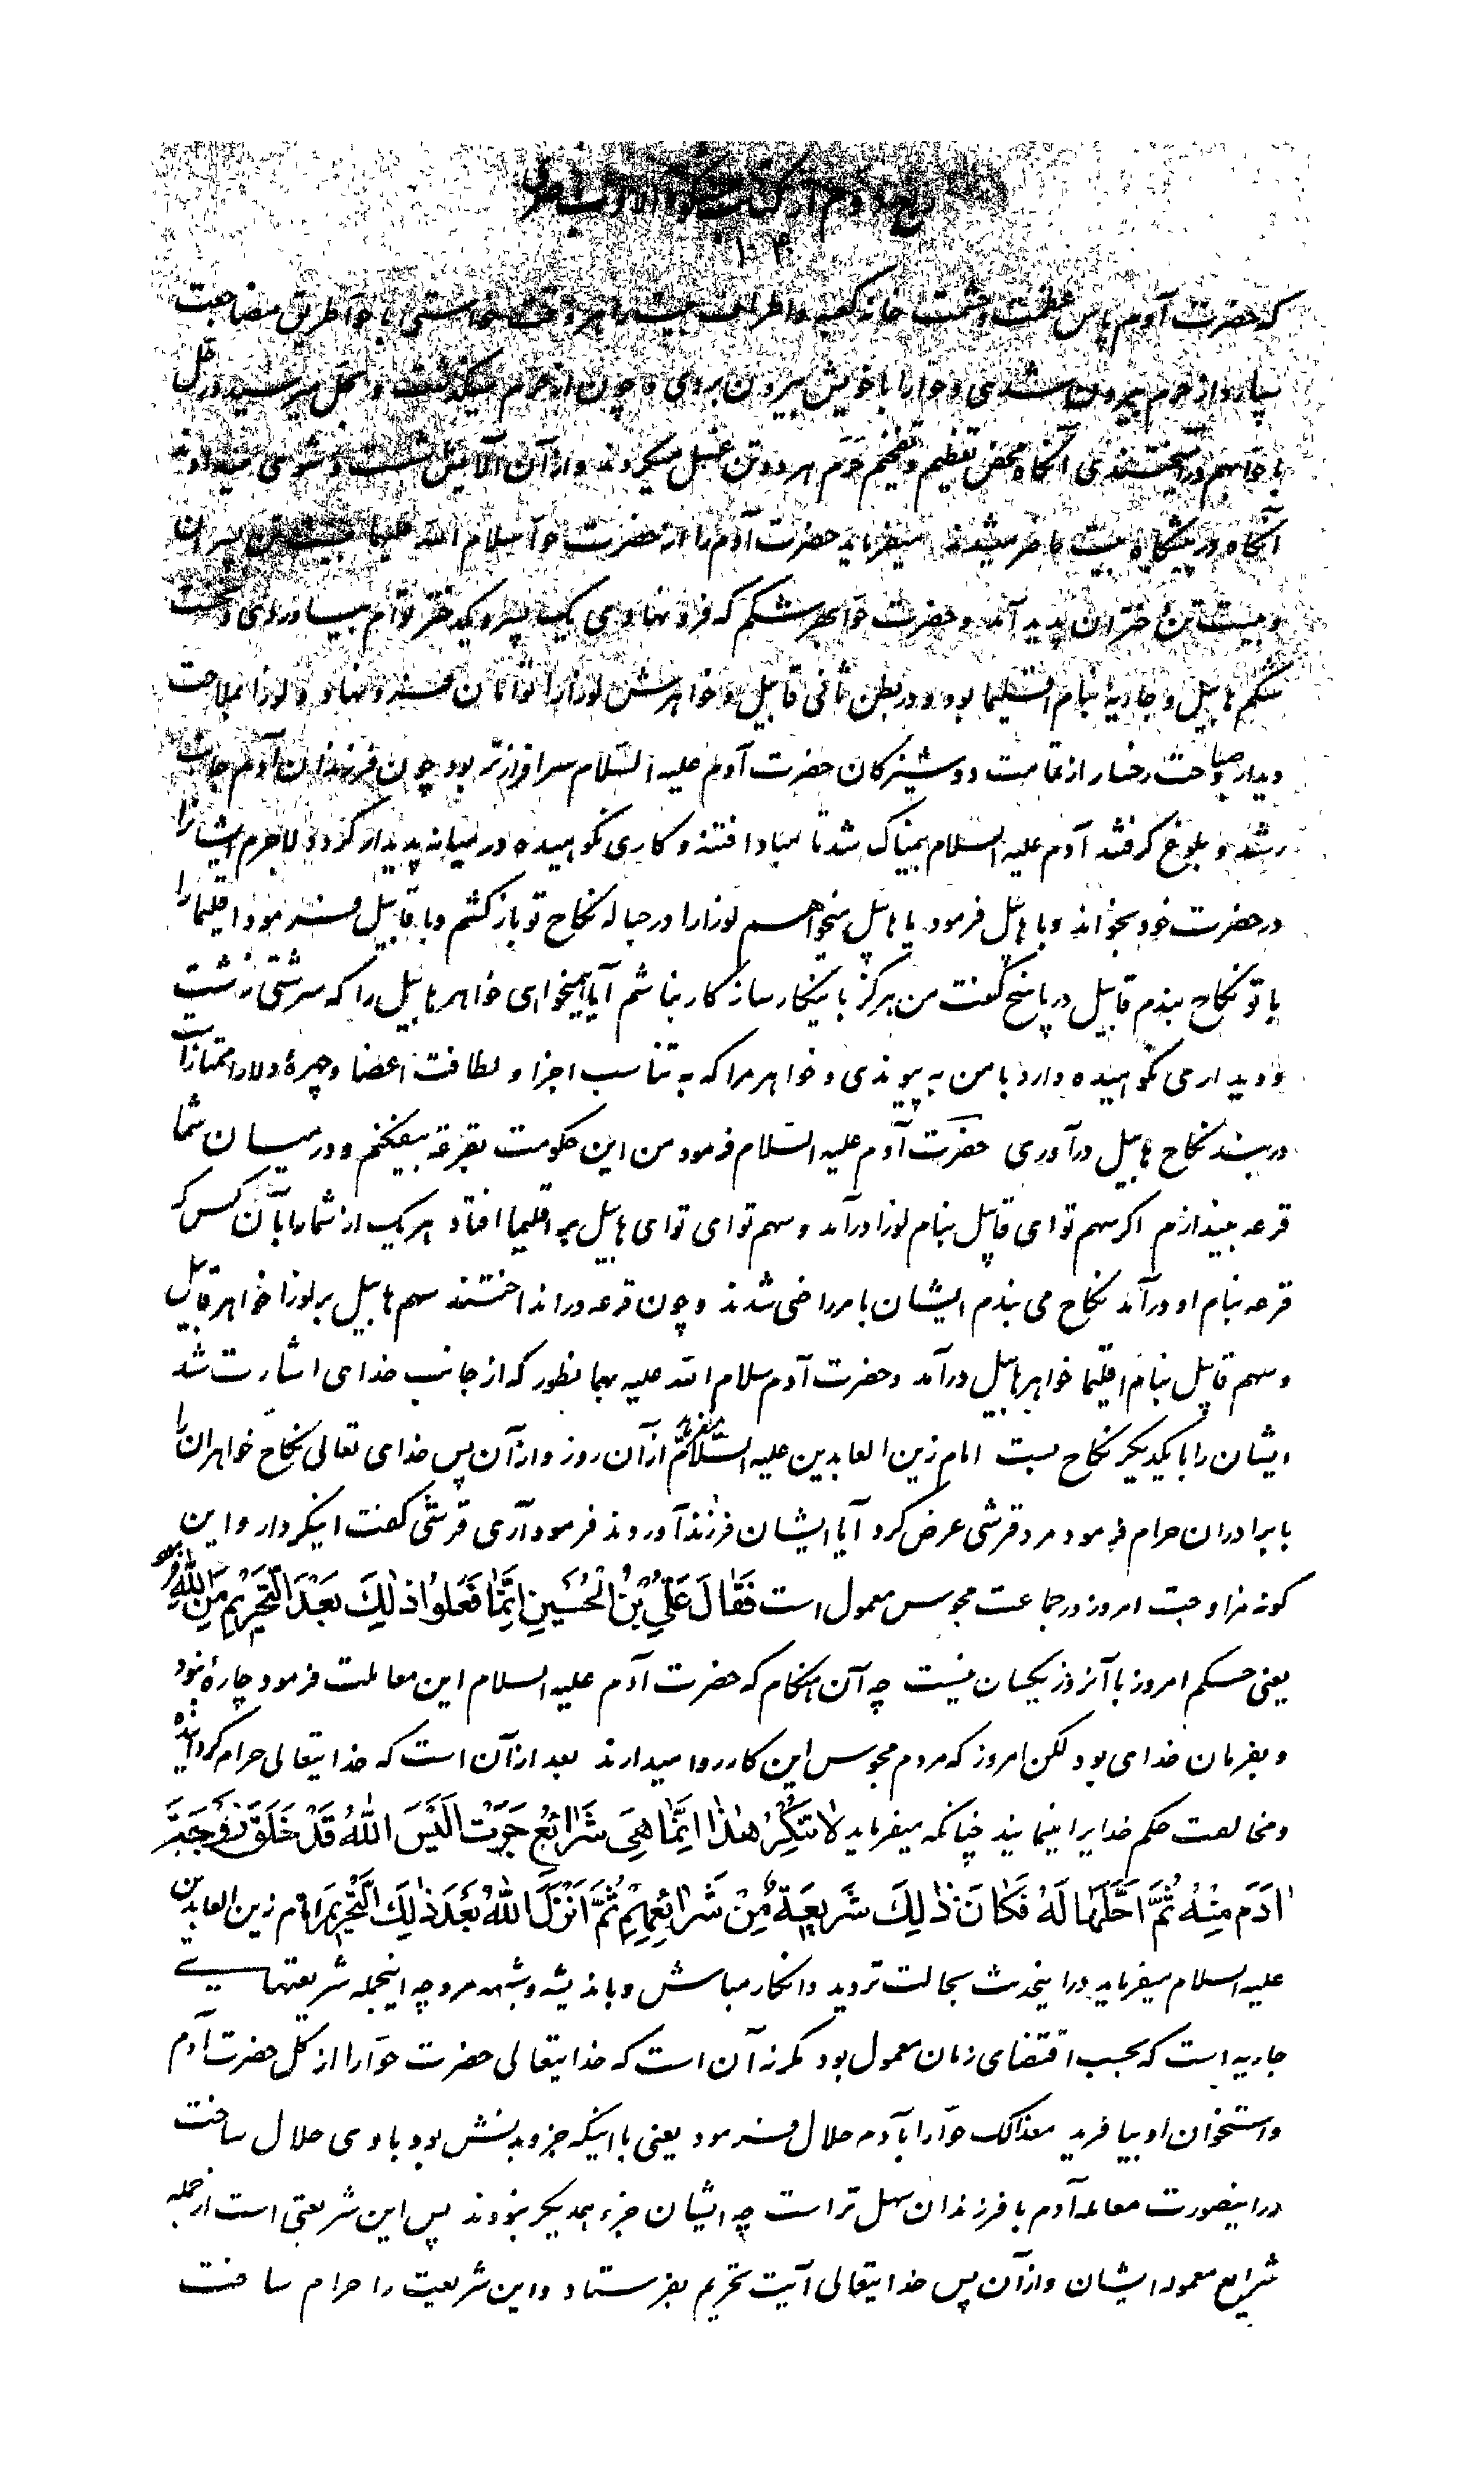 ربع دوم از کتاب مشکوة الادب ناصری
۱۰۳
که حضرت آدم پاس عظمت و حشمت خانه کعبه و اطراف بیت را هر وقت خواستی با حوا طریق مضاجعت
سپارد از حرم بیرون شدی و حوا را با خویش بیرون بردی و چون از حرم میگذشت و بحل میرسید در حل
با حوا بهم درآمیختندی آنگاه محض تعظیم و تفخیم حرم هر دو تن غسل میکردند و از آن آلایش شست و شوی میدادند
آنگاه در پیشگاه بیت حاضر میشدند میفرماید حضرت آدم را از حضرت حوا سلام الله علیهما بیست تن پسران
و بیست تن دختران پدید آمد و حضرت حوا بهر شکم که فرو نهادی یک پسر و یکدختر توام بیاوردی نخست
شکم هابیل و جاریۀ بنام اقلیما بود و در بطن ثانی قابیل و خواهرش لوزا را توامان فرو نهاد و لوزا بملاحت
دیدار و صباحت رخسار از تمامت دوشیزکان حضرت آدم علیه السلام سرافرازتر بود چون فرزندان آدم جانب
رشد و بلوغ گرفتند آدم علیه السلام بیمناک شد تا مبادا فتنه و کاری نکوهیده در میانه پدیدار گردد لاجرم ایشانرا
در حضرت خود بخواند و با هابیل فرمود یا هابیل میخواهم لوزا را در حباله نکاح تو باز کشم و با قابیل فرمود اقلیما را
با تو نکاح بندم قابیل در پاسخ گفت من هرگز باینکار سازکار نباشم آیا میخواهی خواهر هابیل را که سرشتی زشت
و دیداری نکوهیده دارد با من به پیوندی و خواهر مرا که به تناسب اجزا و لطافت اعضا و چهرۀ دلارا ممتاز است
در بند نکاح هابیل درآوری حضرت آدم علیه السلام فرمود من این حکومت بقرعه بیفکنم و در میان شما
قرعه بیندازم اگر سهم تو ای قابیل بنام لوزا درآمد و سهم تو ای توای هابیل بر اقلیما افتاد هر یک از شما را با آن کس که
قرعه بنام او درآمد نکاح می بندم ایشان بامر راضی شدند و چون قرعه در انداختند سهم هابیل بر لوزا خواهر قابیل
و سهم قابیل بنام اقلیما خواهر هابیل درآمد و حضرت آدم سلام الله علیه بهمانطور که از جانب خدای اشارت شد
ایشان را با یکدیگر نکاح بست امام زین العابدین علیه السلام میفرماید از آن روز و از آن پس خدای تعالی نکاح خواهران را
با برادران حرام فرمود مرد قرشی عرض کرد آیا ایشان فرزند آوردند فرمود آری قرشی گفت اینکردار و این
گونه مزاوجت امروز در جماعت مجوس معمول است فَقَالَ عَلِيُّ بْنُ الْحُسَيْنِ اِنَّمَا فَعَلُوا ذٰلِكَ بَعْدَ التَّحْرِيْمِ مِنَ اللّٰهِ فرمود
یعنی حکم امروز با آنروز یکسان نیست چه آن هنگام که حضرت آدم علیه السلام این معاملت فرمود چارۀ نبود
و بفرمان خدای بود لکن امروز که مردم مجوس این کار روا میدارند بعد از آن است که خدایتعالی حرام گردانیده
و مخالفت حکم خدایرا مینمایند چنانکه میفرماید لَا تُنْكِرْ هٰذَا اِنَّمَا هِيَ شَرَائِعُ جَرَتْ اَلَيْسَ اللّٰهُ قَدْ خَلَقَ زَوْجَةَ
اٰدَمَ مِنْهُ ثُمَّ اَحَلَّهَا لَهُ فَكَانَ ذٰلِكَ شَرِيعَةً مِنْ شَرَائِعِهِمْ ثُمَّ اَنْزَلَ اللّٰهُ بَعْدَ ذٰلِكَ التَّحْرِيمَ امام زین العابدین
علیه السلام میفرماید در اینحدیث بحالت تردید و انکار مباش و باندیشه و شبهه مرو چه اینجمله شریعتهایی
جاریه است که بحسب اقتضای زمان معمول بود مگر نه آن است که خدایتعالی حضرت حوا را از گل حضرت آدم
و استخوان او بیافرید معذالک حوا را بآدم حلال فرمود یعنی با اینکه جزو بدنش بود با وی حلال ساخت
در اینصورت معامله آدم با فرزندان سهل تر است چه ایشان جزء همدیگر نبودند پس این شریعتی است از جمله
شرایع معموله ایشان و از آن پس خدایتعالی آیت تحریم بفرستاد و این شریعت را حرام ساخت